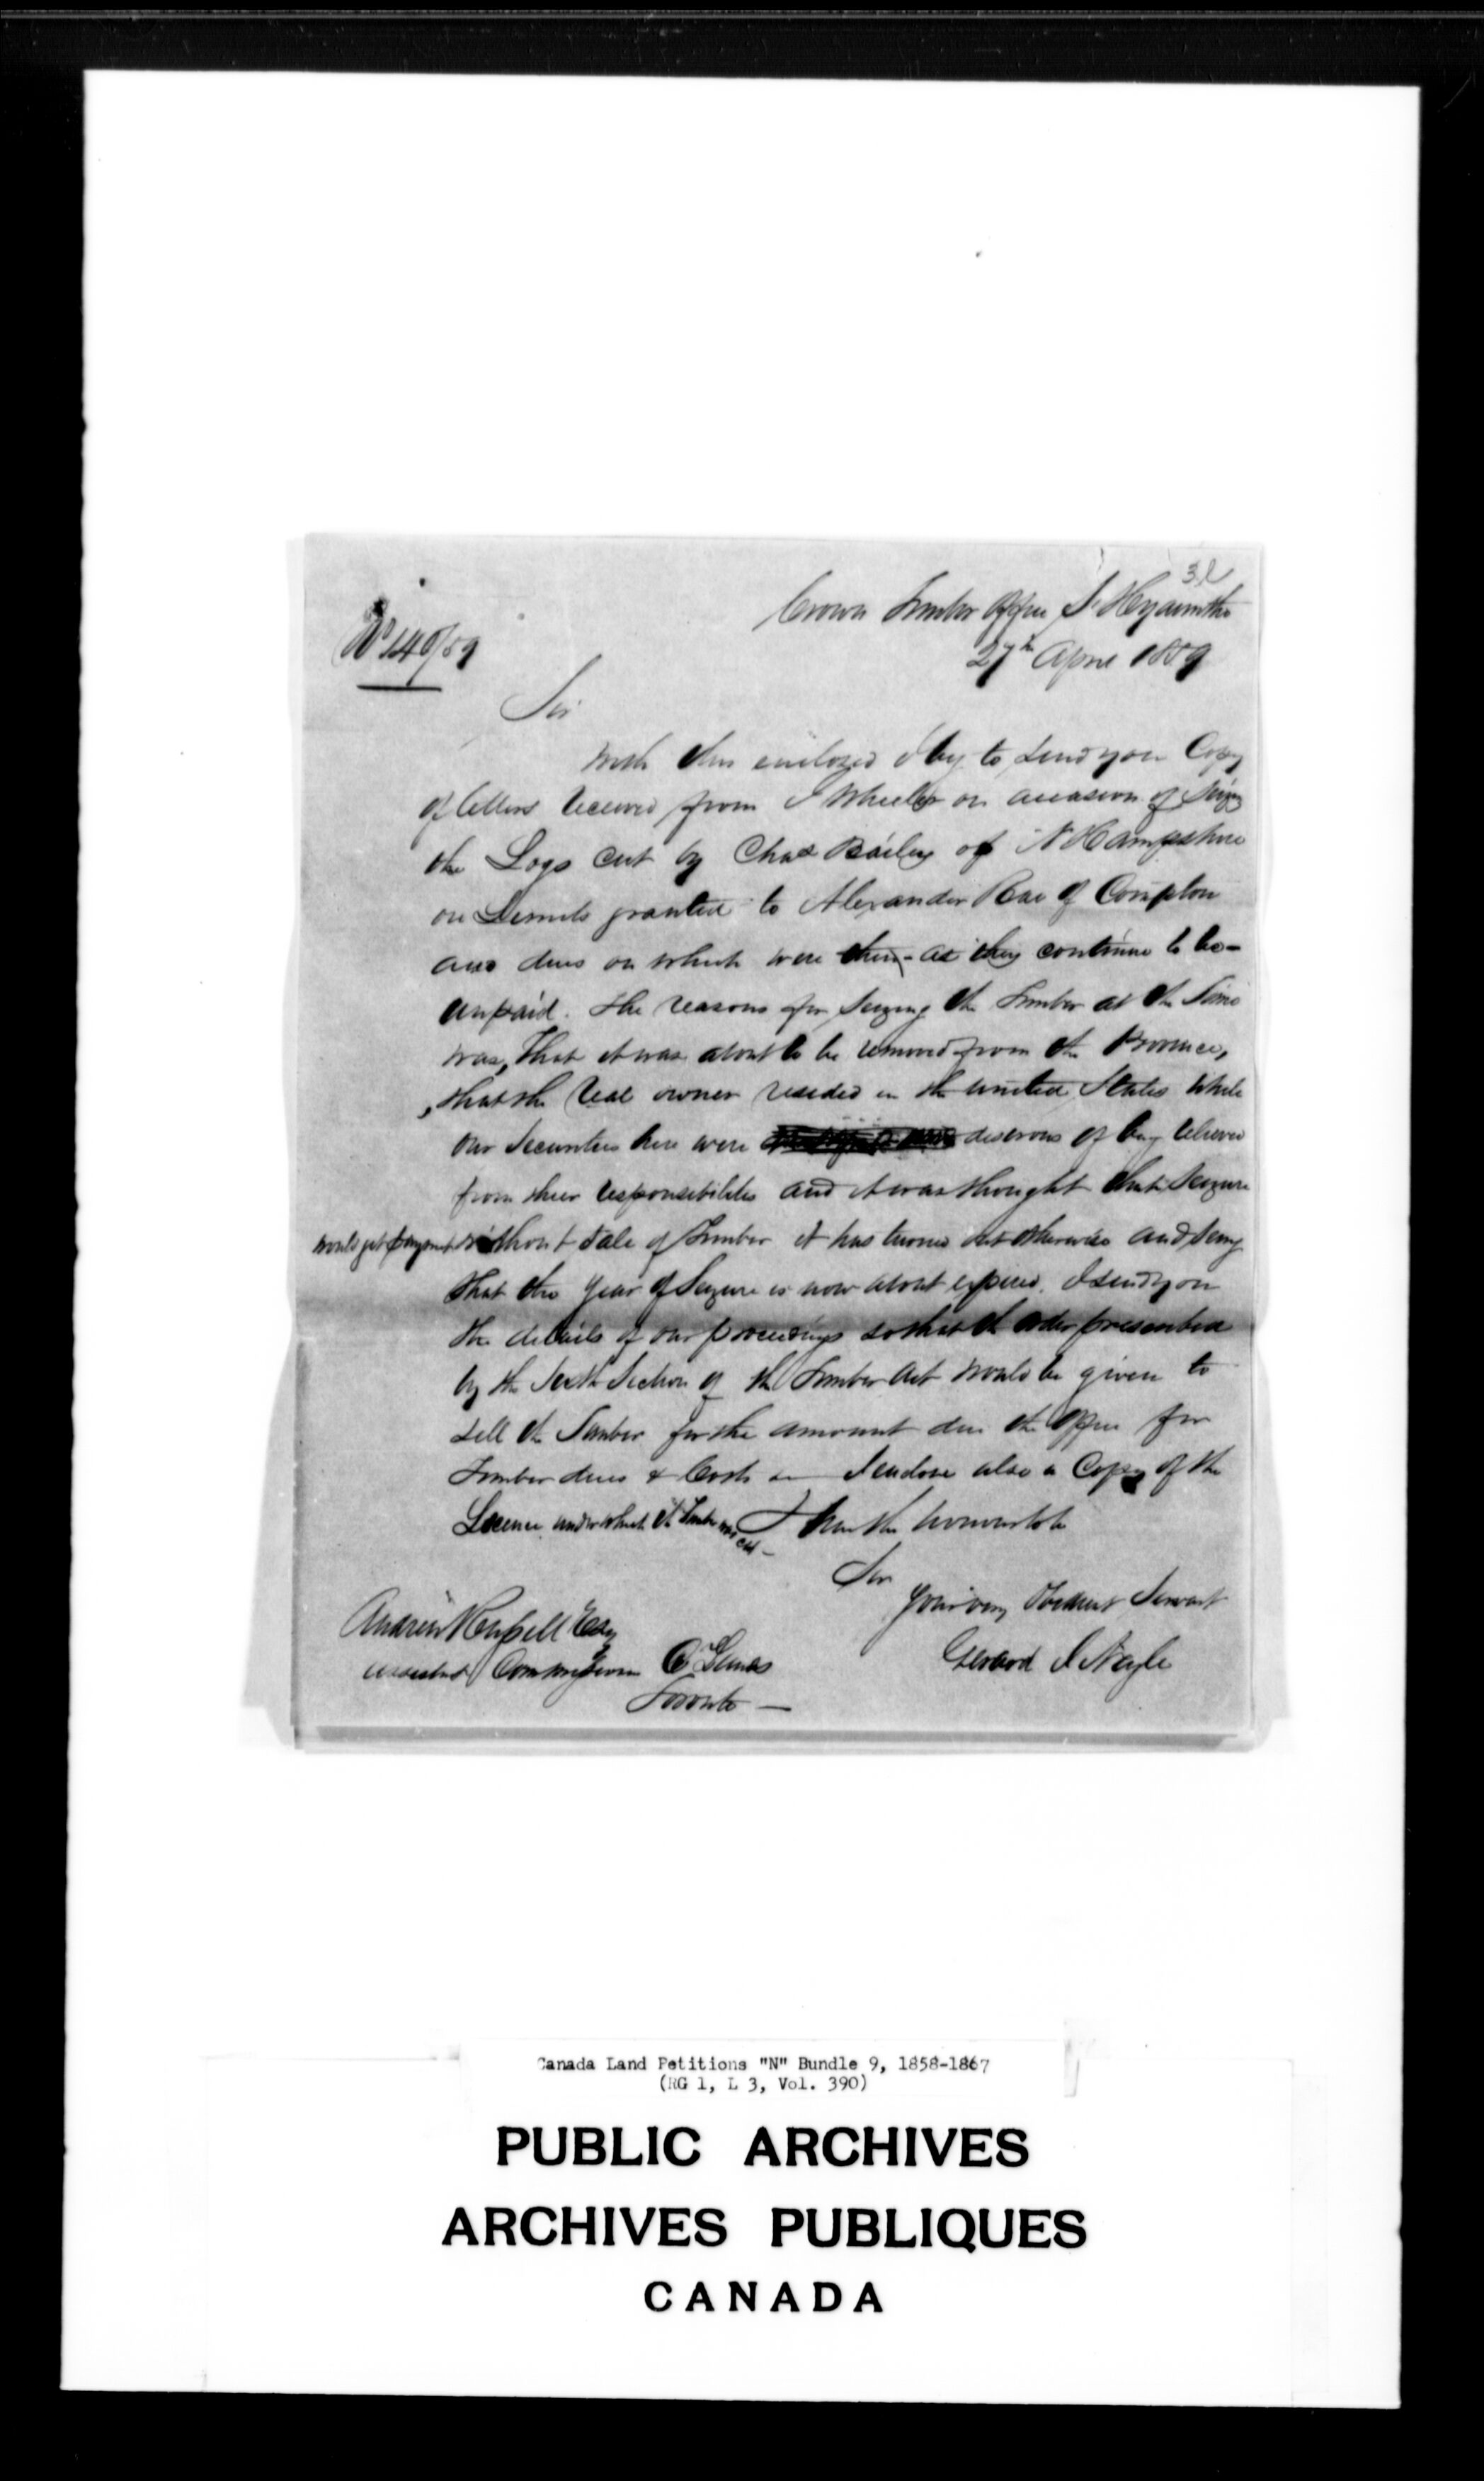 3l
Crown Timber Office St Hyacinthe
27th April 1859
No 140/59
Sir
With this enclosed I beg to send you Copy
of letters received from J Wheeler on occasion of Seizing
the Logs cut by Chas Bailey of N Hampshire
on Permits granted to Alexander Rae of Compton
and dues on which were then as they continue to be
unpaid. The reasons for Seizing the Timber at the Time
was, That it was about to be removed from the Province,
that the Real owner resided in the United States While
our Securities here were desirous of being relieved
from their responsibilities and it was thought that Seizure
would get payment without Sale of Timber it has turned out otherwise and seeing
that the year of Seizure is now about expired. I send you
the details of our proceedings so that the order prescribed
by the Sixth Section of the Timber Act would be given to
sell the Timber for the amount due the Office for
Timber dues & Costs I enclose also a Copy of the
License under which the Timber was cut
I have the honour to be
Sir
Your very Obedient Servant
Gerard J Nagle
Andrew Russell Esq
Assistant Commissioner C Lands
Toronto
Canada Land Petitions "N" Bundle 9, 1858-1867
(RG 1, L 3, Vol. 390)
PUBLIC ARCHIVES
ARCHIVES PUBLIQUES
CANADA